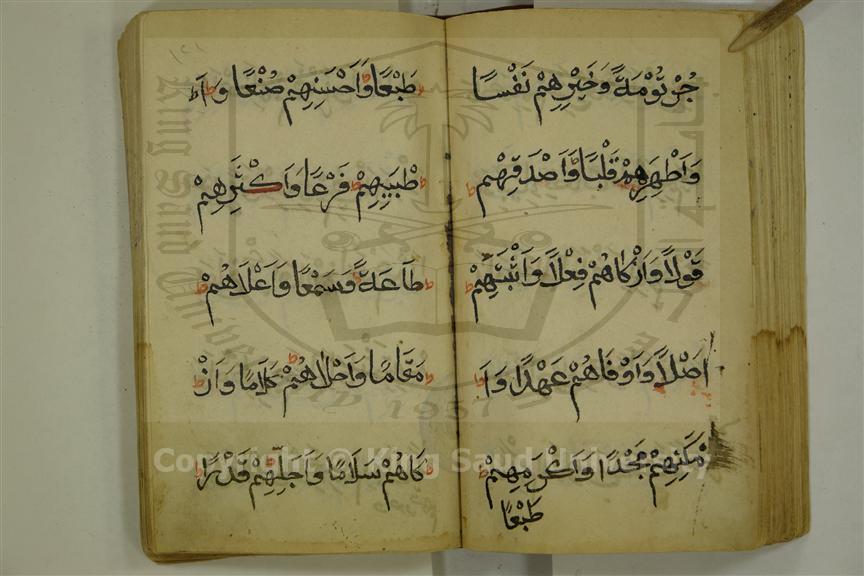 جُرْثُومَةً وَخَيْرِهِمْ نَفْسًا
وَاَطْهَرِهِمْ قَلْبًا وَّاَصْدَقِهِمْ
قَوْلًا وَاَزْكَاهُمْ فِعْلًا وَاَثْبَتِهِمْ
اَصْلًا وَاَوْفَاهُمْ عَهْدًا وَاَ
مْكَنِهِمْ مَجْدًا وَاَكْرَمِهِمْ
طَبْعًا
١٢١
طَبْعًا وَّاَحْسَنِهِمْ صُنْعًا وَاَ
طْيَبِهِمْ فَرْعًا وَاَكْثَرِهِمْ
طَاعَةً وَسَمْعًا وَاَعْلَاهُمْ
مَقَامًا وَاَحْلَاهُمْ كَلَامًا وَاَزْ
كَاهُمْ سَلَامًا وَاَجَلِّهِمْ قَدْرًا
Copyright © King Saud University
King Saud University
1957